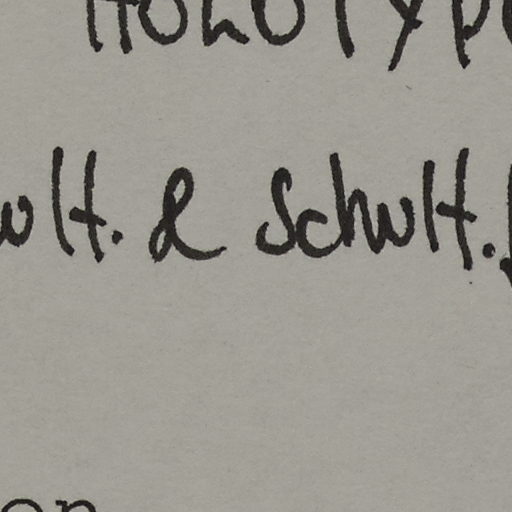 HOLOTYP
ult. & Schult.
on